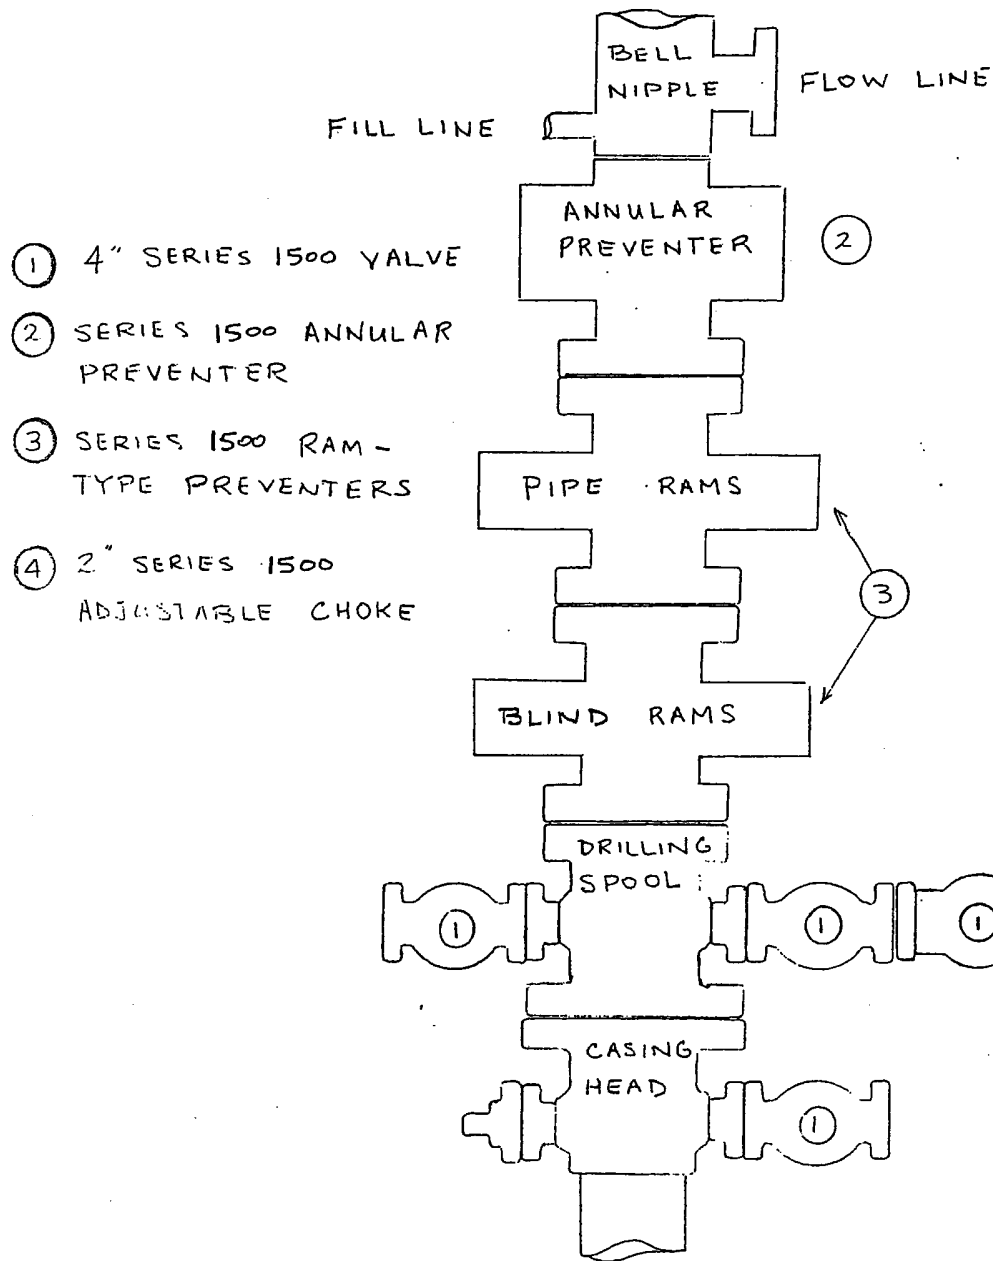 BELL
NIPPLE
FLOW LINE
FILL LINE
ANNULAR
PREVENTER
②
① 4" SERIES 1500 VALVE
② SERIES 1500 ANNULAR
PREVENTER
③ SERIES 1500 RAM-
TYPE PREVENTERS
④ 2" SERIES 1500
ADJUSTABLE CHOKE
PIPE RAMS
③
BLIND RAMS
DRILLING
SPOOL
① ① ①
CASING
HEAD
①